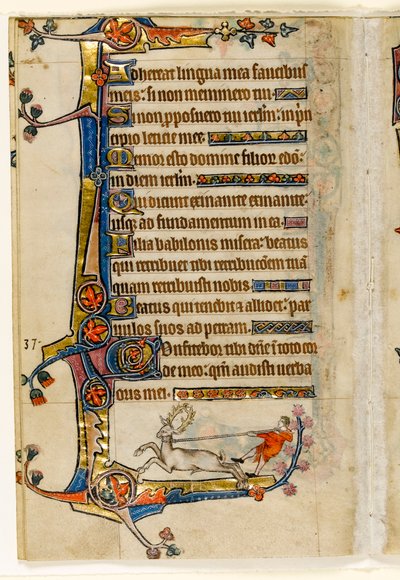 Adhereat lingua mea faucibus
meis: si non meminero tui
Si non pposuero tui ierlm: in pn
cipio leticie mee.
Memor esto domine filior edō:
in diem ierlm.
Qui dicunt exinanite exinanite:
usq; ad fundamentum in ea.
Filia babilonis misera: beatus
qui retribuet tibi retributionem tuā
quam retribuisti nobis
Beatus qui tenebit & allidet: par
uulos suos ad petram.
37
Confitebor tibi dn̄e ī toto cor
de meo: qm̄ audisti uerba
oris mei.